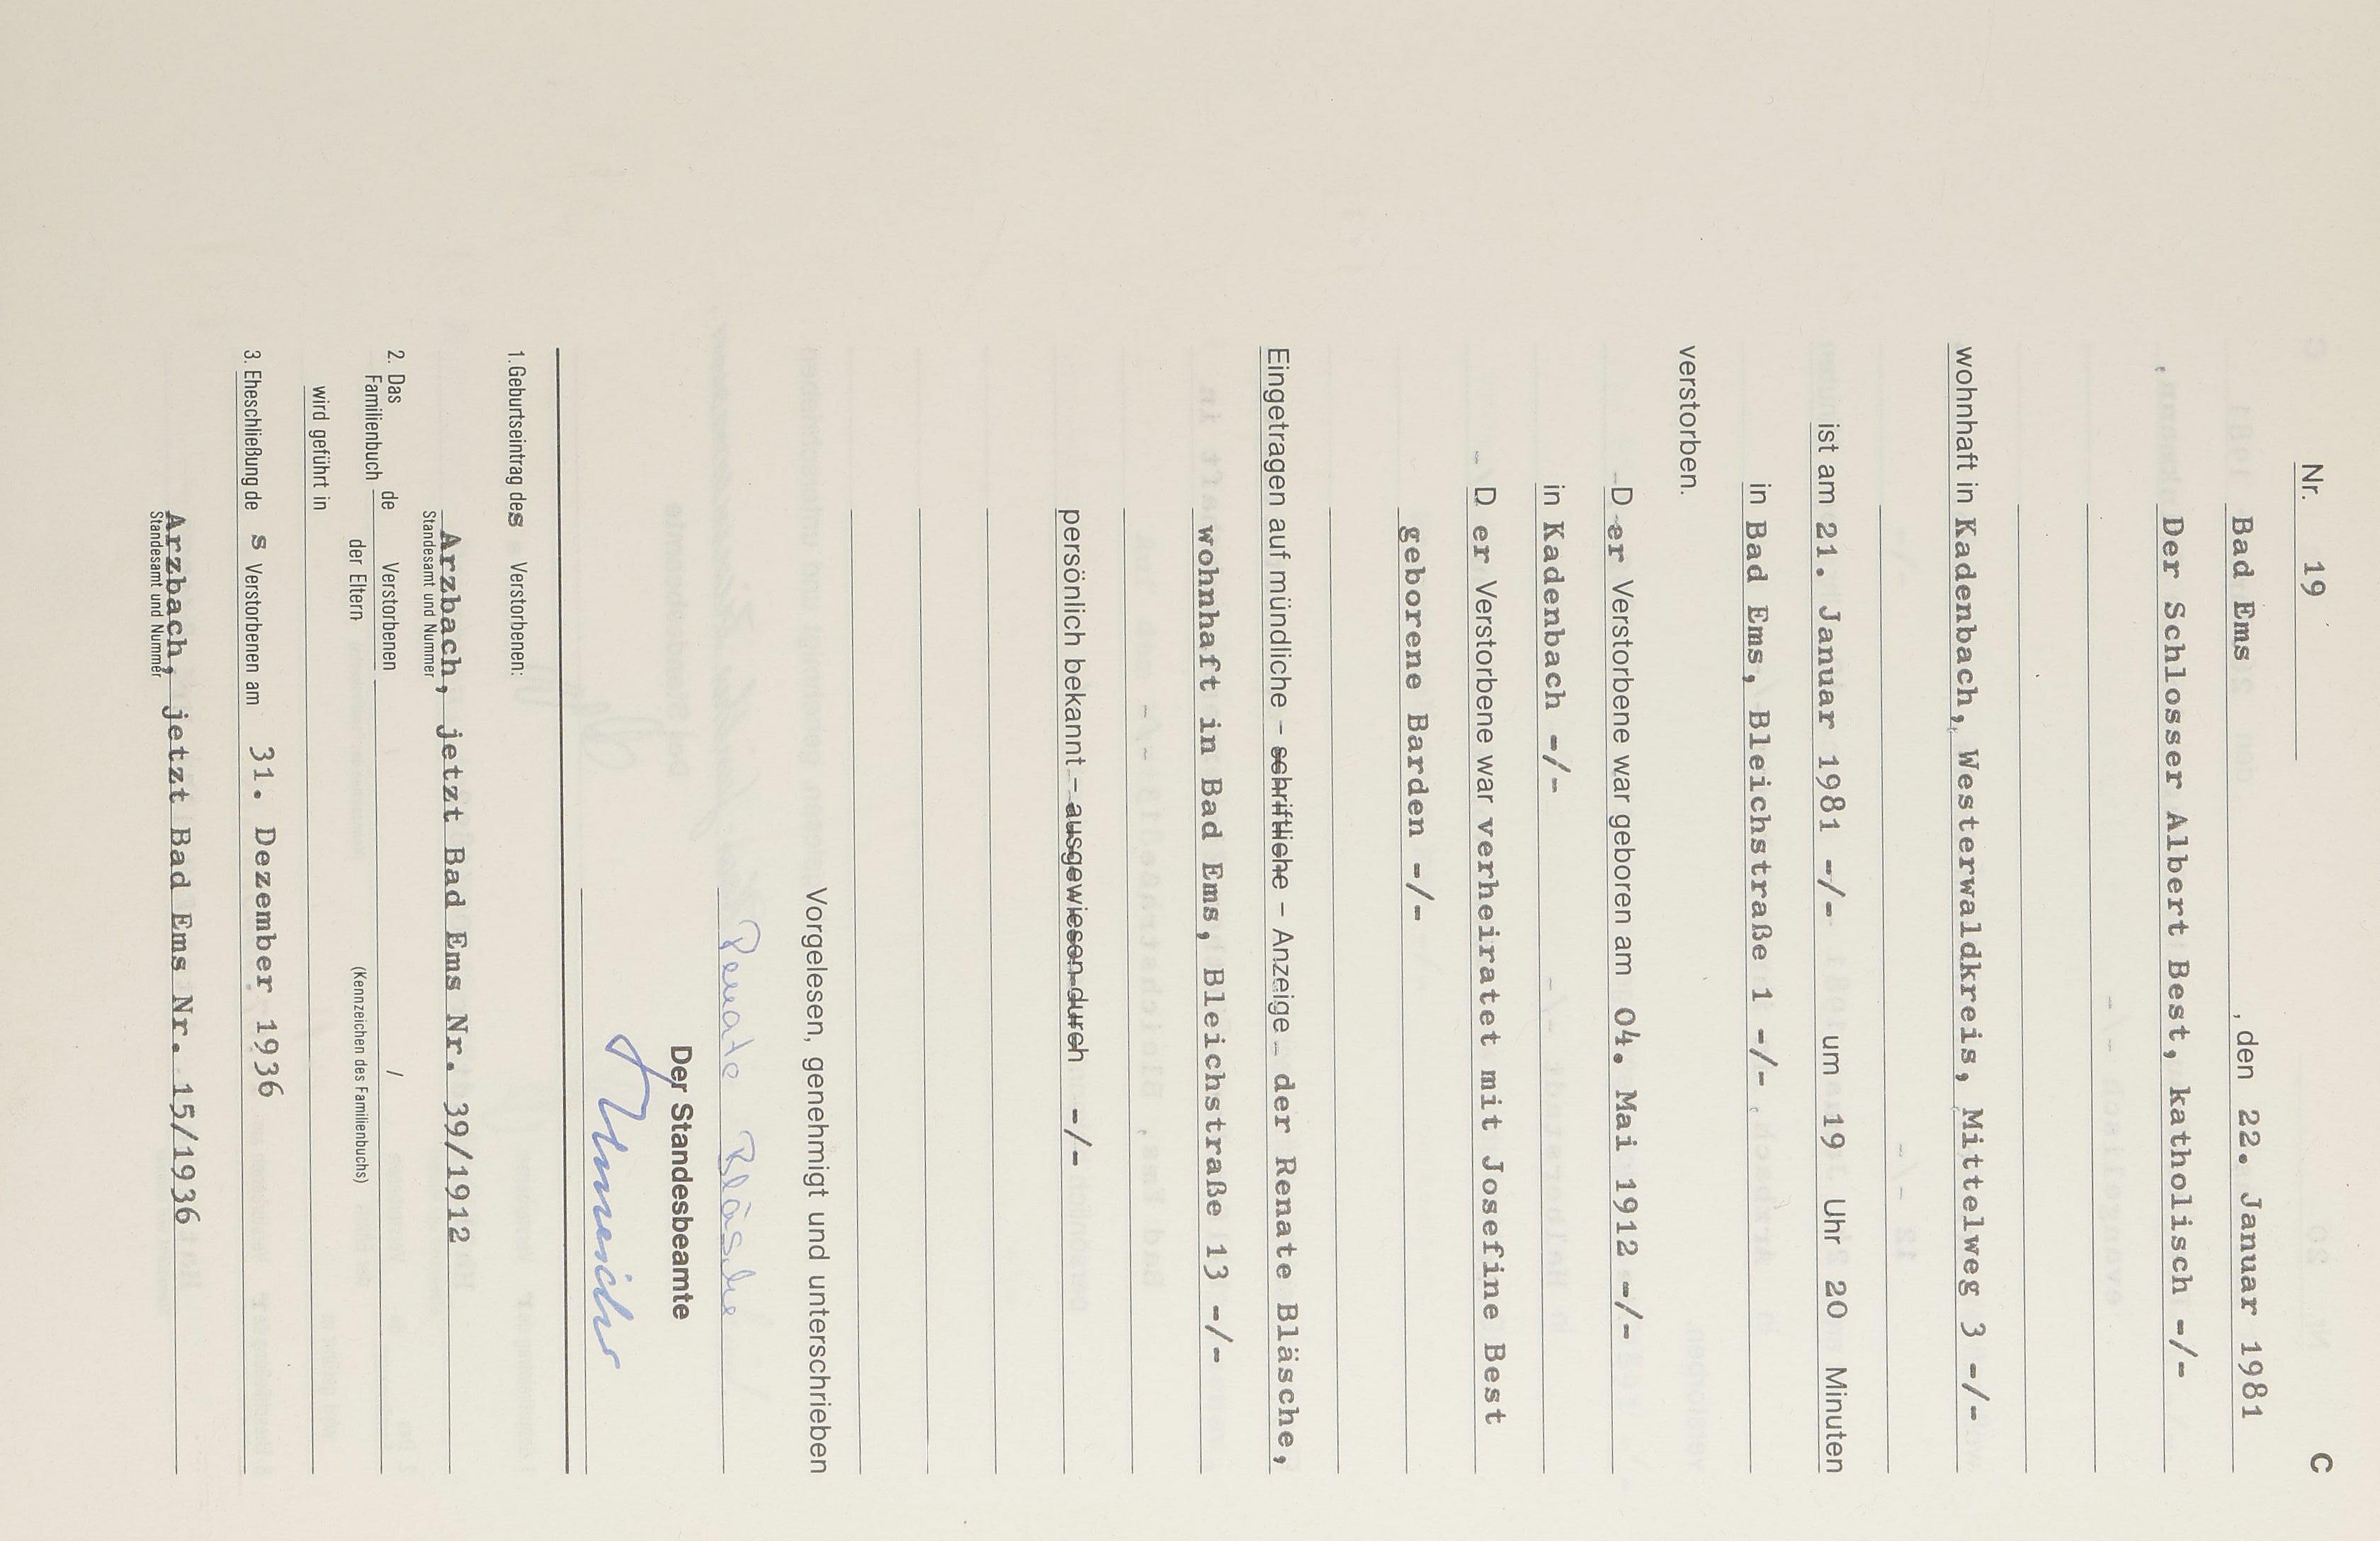 Nr. 19 C
Bad Ems , den 22. Januar 1981
Der Schlosser Albert Best, katholisch -/-
,
wohnhaft in Kadenbach, Westerwaldkreis, Mittelweg 3 -/-
ist am 21. Januar 1981 -/- um 19 Uhr 20 Minuten
in Bad Ems, Bleichstraße 1 -/-
verstorben.
D er Verstorbene war geboren am 04. Mai 1912 -/-
in Kadenbach -/-
D er Verstorbene war verheiratet mit Josefine Best
geborene Barden -/-
Eingetragen auf mündliche – schriftliche – Anzeige – der Renate Bläsche,
wohnhaft in Bad Ems, Bleichstraße 13 -/-
persönlich bekannt – ausgewiesen durch -/-
Vorgelesen, genehmigt und unterschrieben
Renate Bläsche
Der Standesbeamte
1. Geburtseintrag des Verstorbenen:
Arzbach, jetzt Bad Ems Nr. 39/1912
Standesamt und Nummer
2. Das Familienbuch de Verstorbenen /
der Eltern (Kennzeichen des Familienbuchs)
wird geführt in
3. Eheschließung de s Verstorbenen am 31. Dezember 1936
Arzbach, jetzt Bad Ems Nr. 15/1936
Standesamt und Nummer